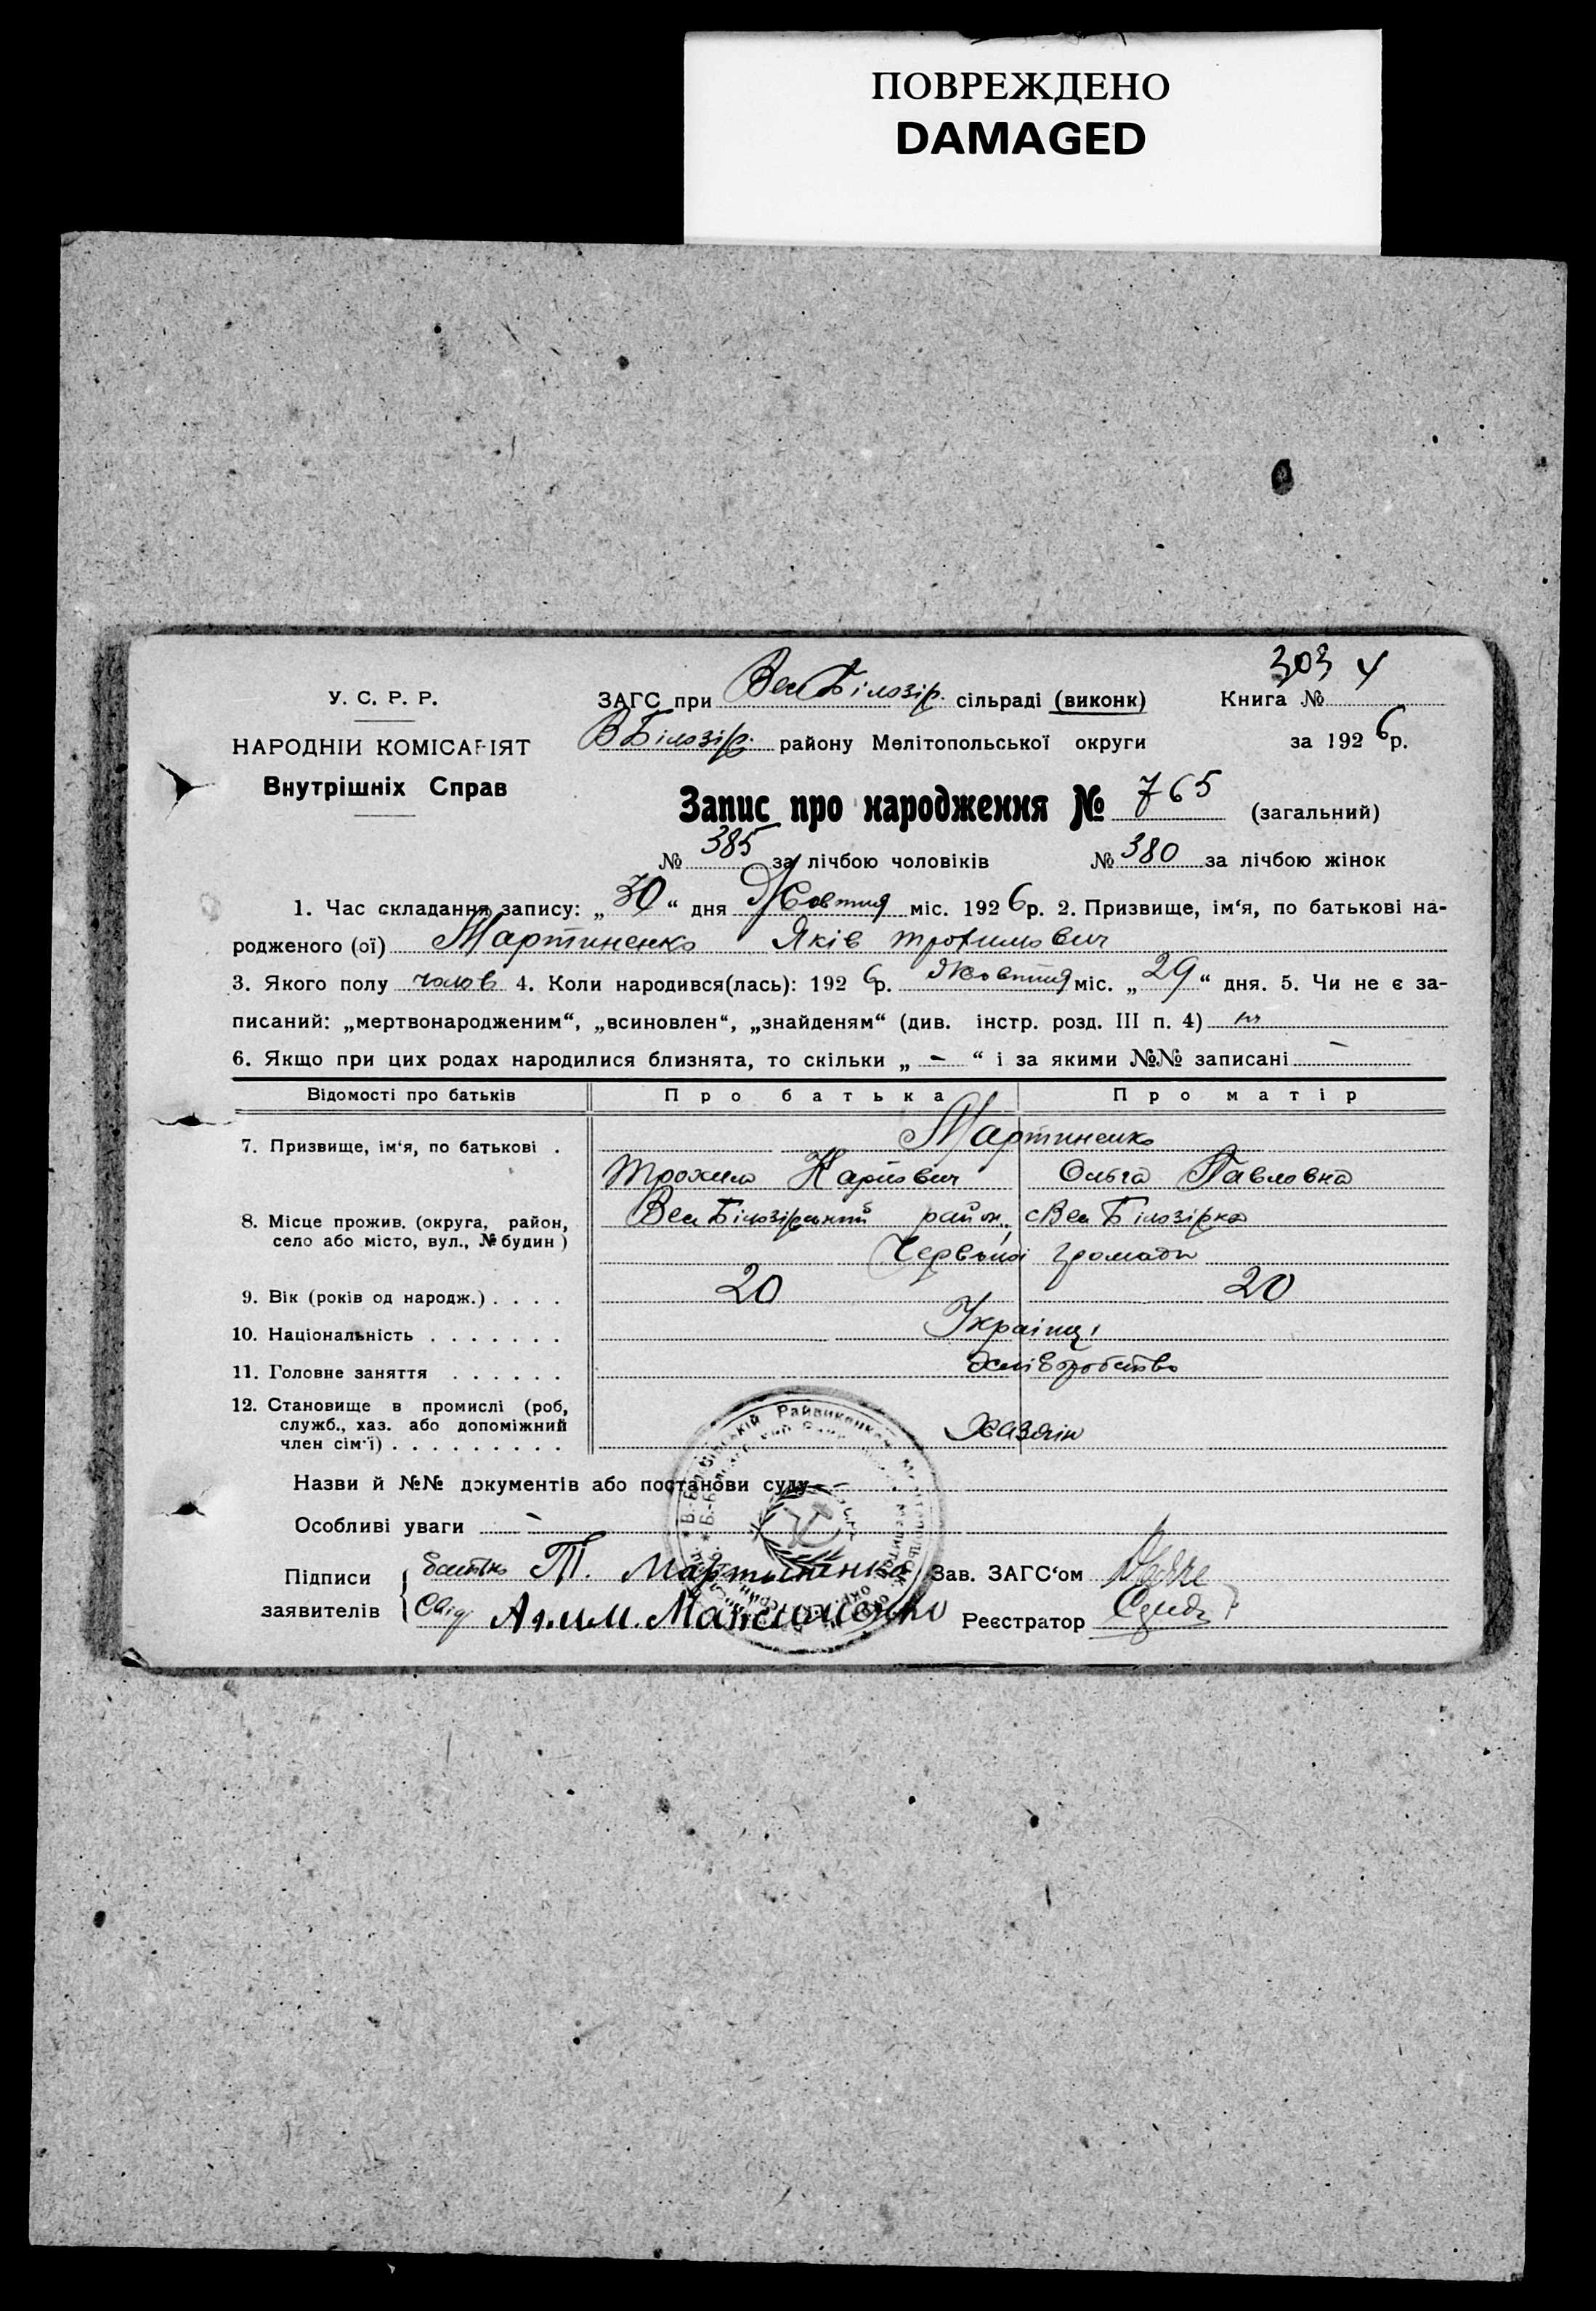 ПОВРЕЖДЕНО
DAMAGED
303 4
У. С. Р. Р.
ЗАГС при Вел Білозір. сільраді (виконк) Книга №
НАРОДНІЙ КОМІСАРІЯТ
В Білозір. району Мелітопольської округи за 1926р.
Внутрішніх Справ
Запис про народження № 765 (загальний)
№ 385 за лічбою чоловіків № 380 за лічбою жінок
1. Час складання запису: „30“ дня Жовтня міс. 1926р. 2. Призвище, ім'я, по батькові на-
родженого (ої) Мартиненко Яків Трохимович
3. Якого полу чолов 4. Коли народився(лась): 1926р. Жовтня міс. „29“ дня. 5. Чи не є за-
писаний: „мертвонародженим“, „всиновлен“, „знайденям“ (див. інстр. розд. III п. 4)
6. Якщо при цих родах народилися близнята, то скільки „ - “ і за якими №№ записані -
Відомості про батьків Про батька Про матір
7. Призвище, ім'я, по батькові . Мартиненко
Трохим Карпович Ольга Павловна
8. Місце прожив. (округа, район, село або місто, вул., № будин) Вел Білозірский район, с Вел Білозірка
Червоної громади
9. Вік (років од народж.) . . . . 20 20
10. Національність . . . . . . . Українці
11. Головне заняття . . . . . . хліборобство
12. Становище в промислі (роб,
служб., хаз. або допоміжний
член сім'ї) . . . . . . . . . Хазяін
Назви й №№ документів або постанови суду -
Особливі уваги -
Підписи батько Т. Мартыненко Зав. ЗАГС'ом
заявителів Свід Реєстратор